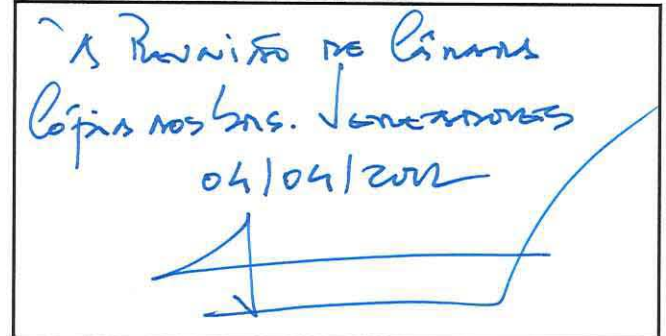 À Reunião de Câmara
Cópia aos Srs. Vereadores
04/04/2022